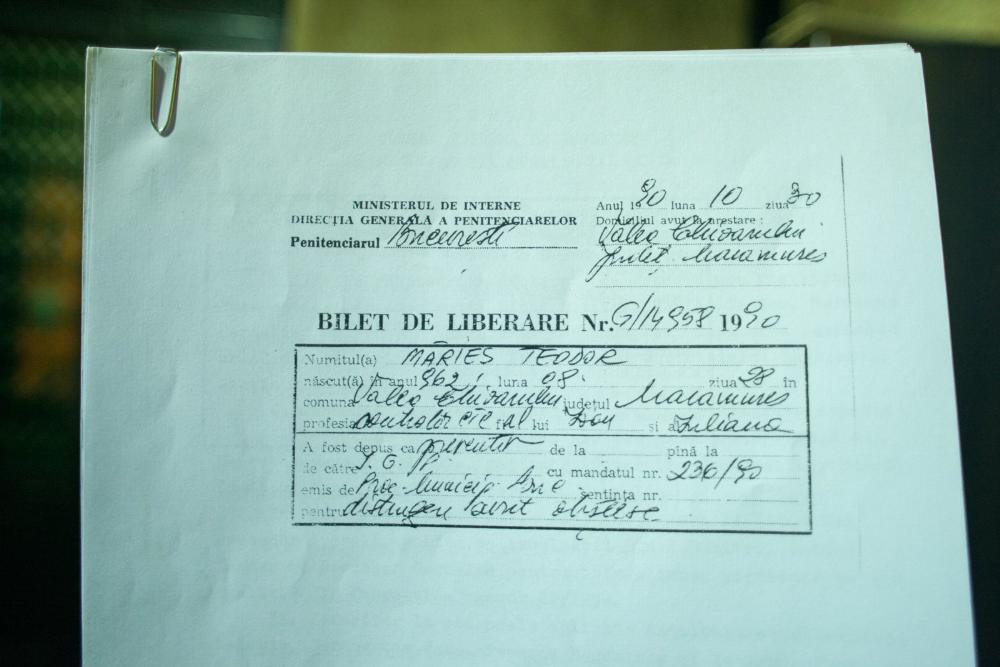 MINISTERUL DE INTERNE
DIRECȚIA GENERALĂ A PENITENCIARELOR
Penitenciarul București
Anul 1990 luna 10 ziua 30
Domiciliul avut la arestare :
Valea Chioarului
județ Maramureș
BILET DE LIBERARE Nr. G/14958 1990
Numitul(a) MĂRIEȘ TEODOR
născut(ă) în anul 962 luna 08 ziua 28 în
comuna Valea Chioarului județul Maramureș
profesia controlor CTC fiul lui Ion și a Iuliana
A fost depus ca preventiv de la pînă la
de către I. G. P. cu mandatul nr. 236/90
emis de Proc. Municip. Buc sentința nr.
pentru distrugere avut obștesc